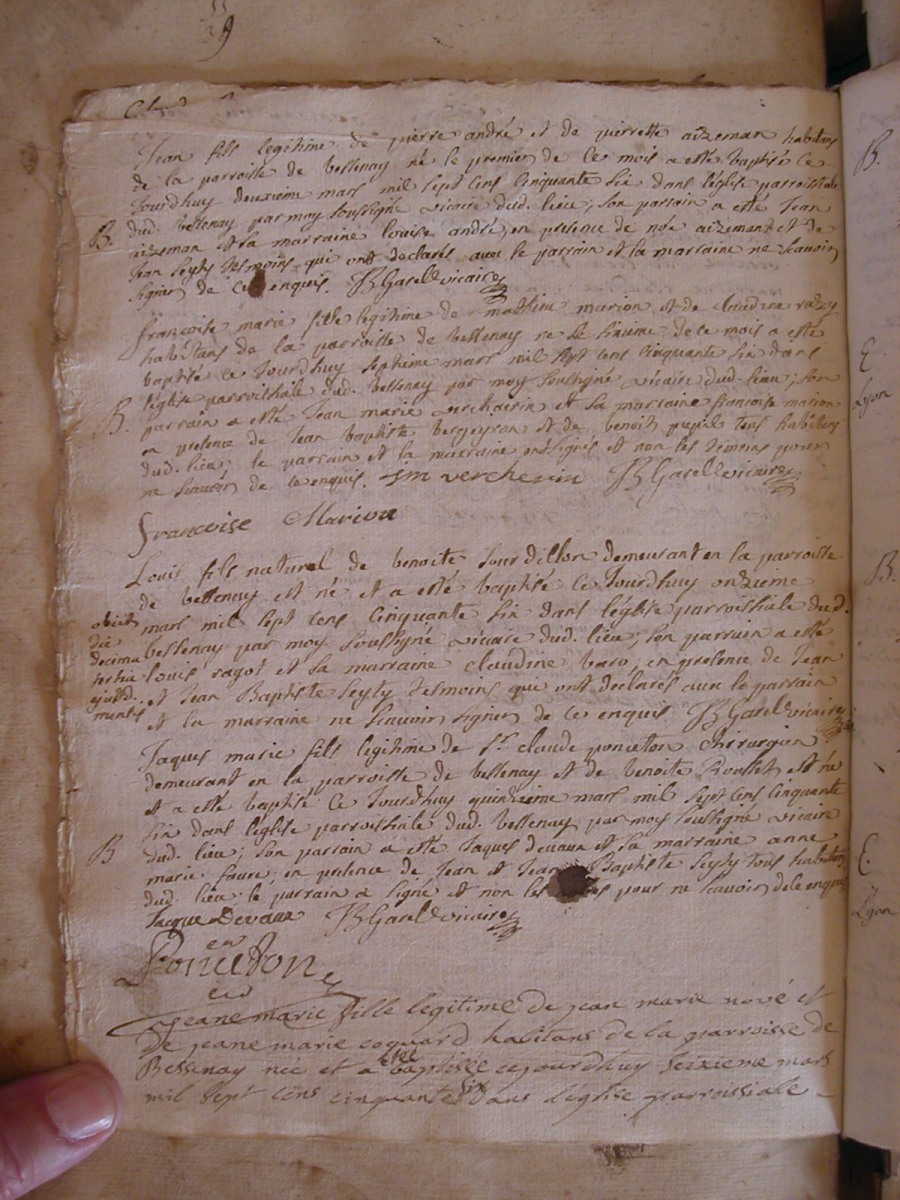 Jean fils legithime de pierre andré et de pierrette aizeman habitans
de la parroisse de bessenay né le premier de ce mois a esté baptisé ce
Jourdhuy deuxieme mars mil sept cens cinquante six dans l'église parroissiale
dud. bessenay par moy soussigné vicaire dud. lieu, son parrain a esté Jean
B. aizeman et sa marraine louise andré, en presence de noé aizemant et de
Jean Seyty tesmoins qui ont declarés avec le parrain et la marraine ne scavoir
signer de ce enquis. JBGarel vicaire
francoise marie fille legitime de mathieu marion et de claudine
habitans de la parroisse de bessenay né le de ce mois a esté
baptisé ce Jourdhuy septieme mars mil sept cens cinquante six dans
l'église parroissiale dud. bessenay par moy soussigné vicaire dud. lieu, son
B. parrain a esté Jean marie vercherin et sa marraine francoise marion
en presence de Jean baptiste bergeyron et de benoit pupil tous habitans
dud. lieu; le parrain et la marraine ont signés et non les temoins pour
ne scavoir de ce enquis. Jm vercherin JBGarel vicaire
francoise Marion
Louis fils naturel de benoite Sourdillon demeurant en la parroisse
de bessenay est né et a esté baptisé ce Jourdhuy onzieme
mars mil sept cens cinquante six dans l'église parroissiale dud.
bessenay par moy soussigné vicaire dud. lieu, son parrain a esté
louis ragot et sa marraine claudine baro, en presence de Jean
et Jean Baptiste Seyty tesmoins qui ont declarés avec le parrain
et la marraine ne scavoir signer de ce enquis JBGarel vicaire
obiit
die
decima
tertia
ejusd.
mensis
Jaques marie fils legithime de Sr. claude ponceton chirurgien
demeurant en la parroisse de bessenay et de benoite Roullet est né
et a esté baptisé ce Jourdhuy quinzieme mars mil sept cens cinquante
six dans l'église parroissiale dud. bessenay par moy soussigné vicaire
B dud. lieu; son parrain a esté Jaques devaux et sa marraine anne
marie faure, en presence de Jean et Jean Baptiste Seyty tous habitans
dud. lieu le parrain a signé et non les pour ne scavoir de ce enquis
Jacque Devaux JBGarel vicaire
Ponceton
Jeane marie fille legitime de jean marie nové et
De jeane marie coquard habitans de la parroisse de
Bessenay née et a été baptisée cejourdhuy seixieme mars
mil sept cens cinquante six dans l'église parroissiale
B.
E
Lyon
B.
E.
Lyon